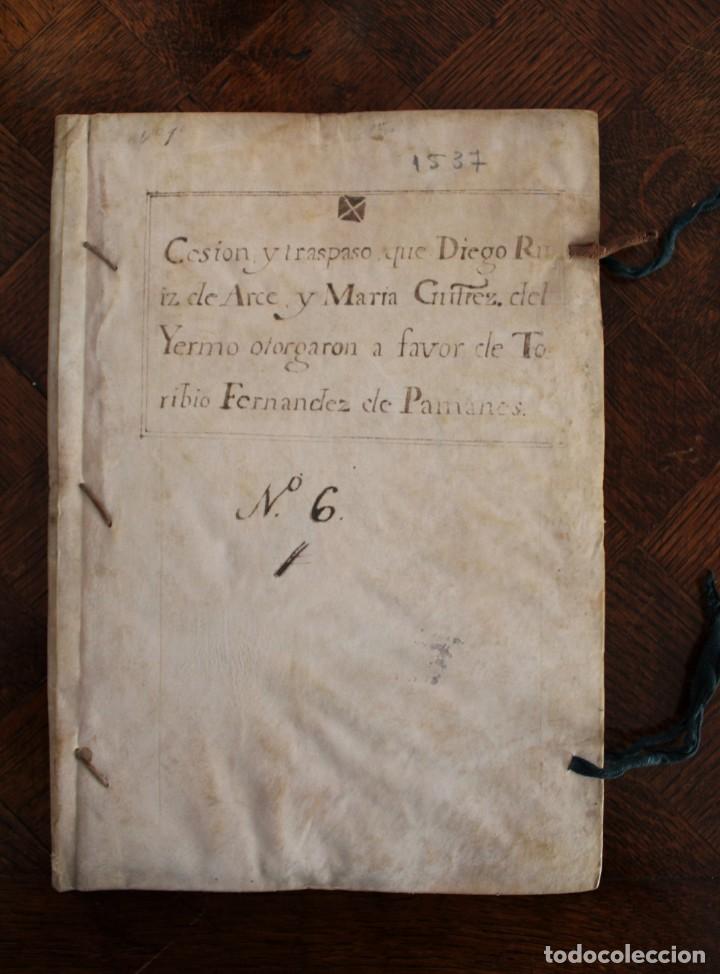 1537
Cesion, y traspaso, que Diego Ru
iz de Arce, y Maria Gutrez. del
Yermo otorgaron a favor de To
ribio Fernandez de Pamanes.
N.º 6.
todocoleccion